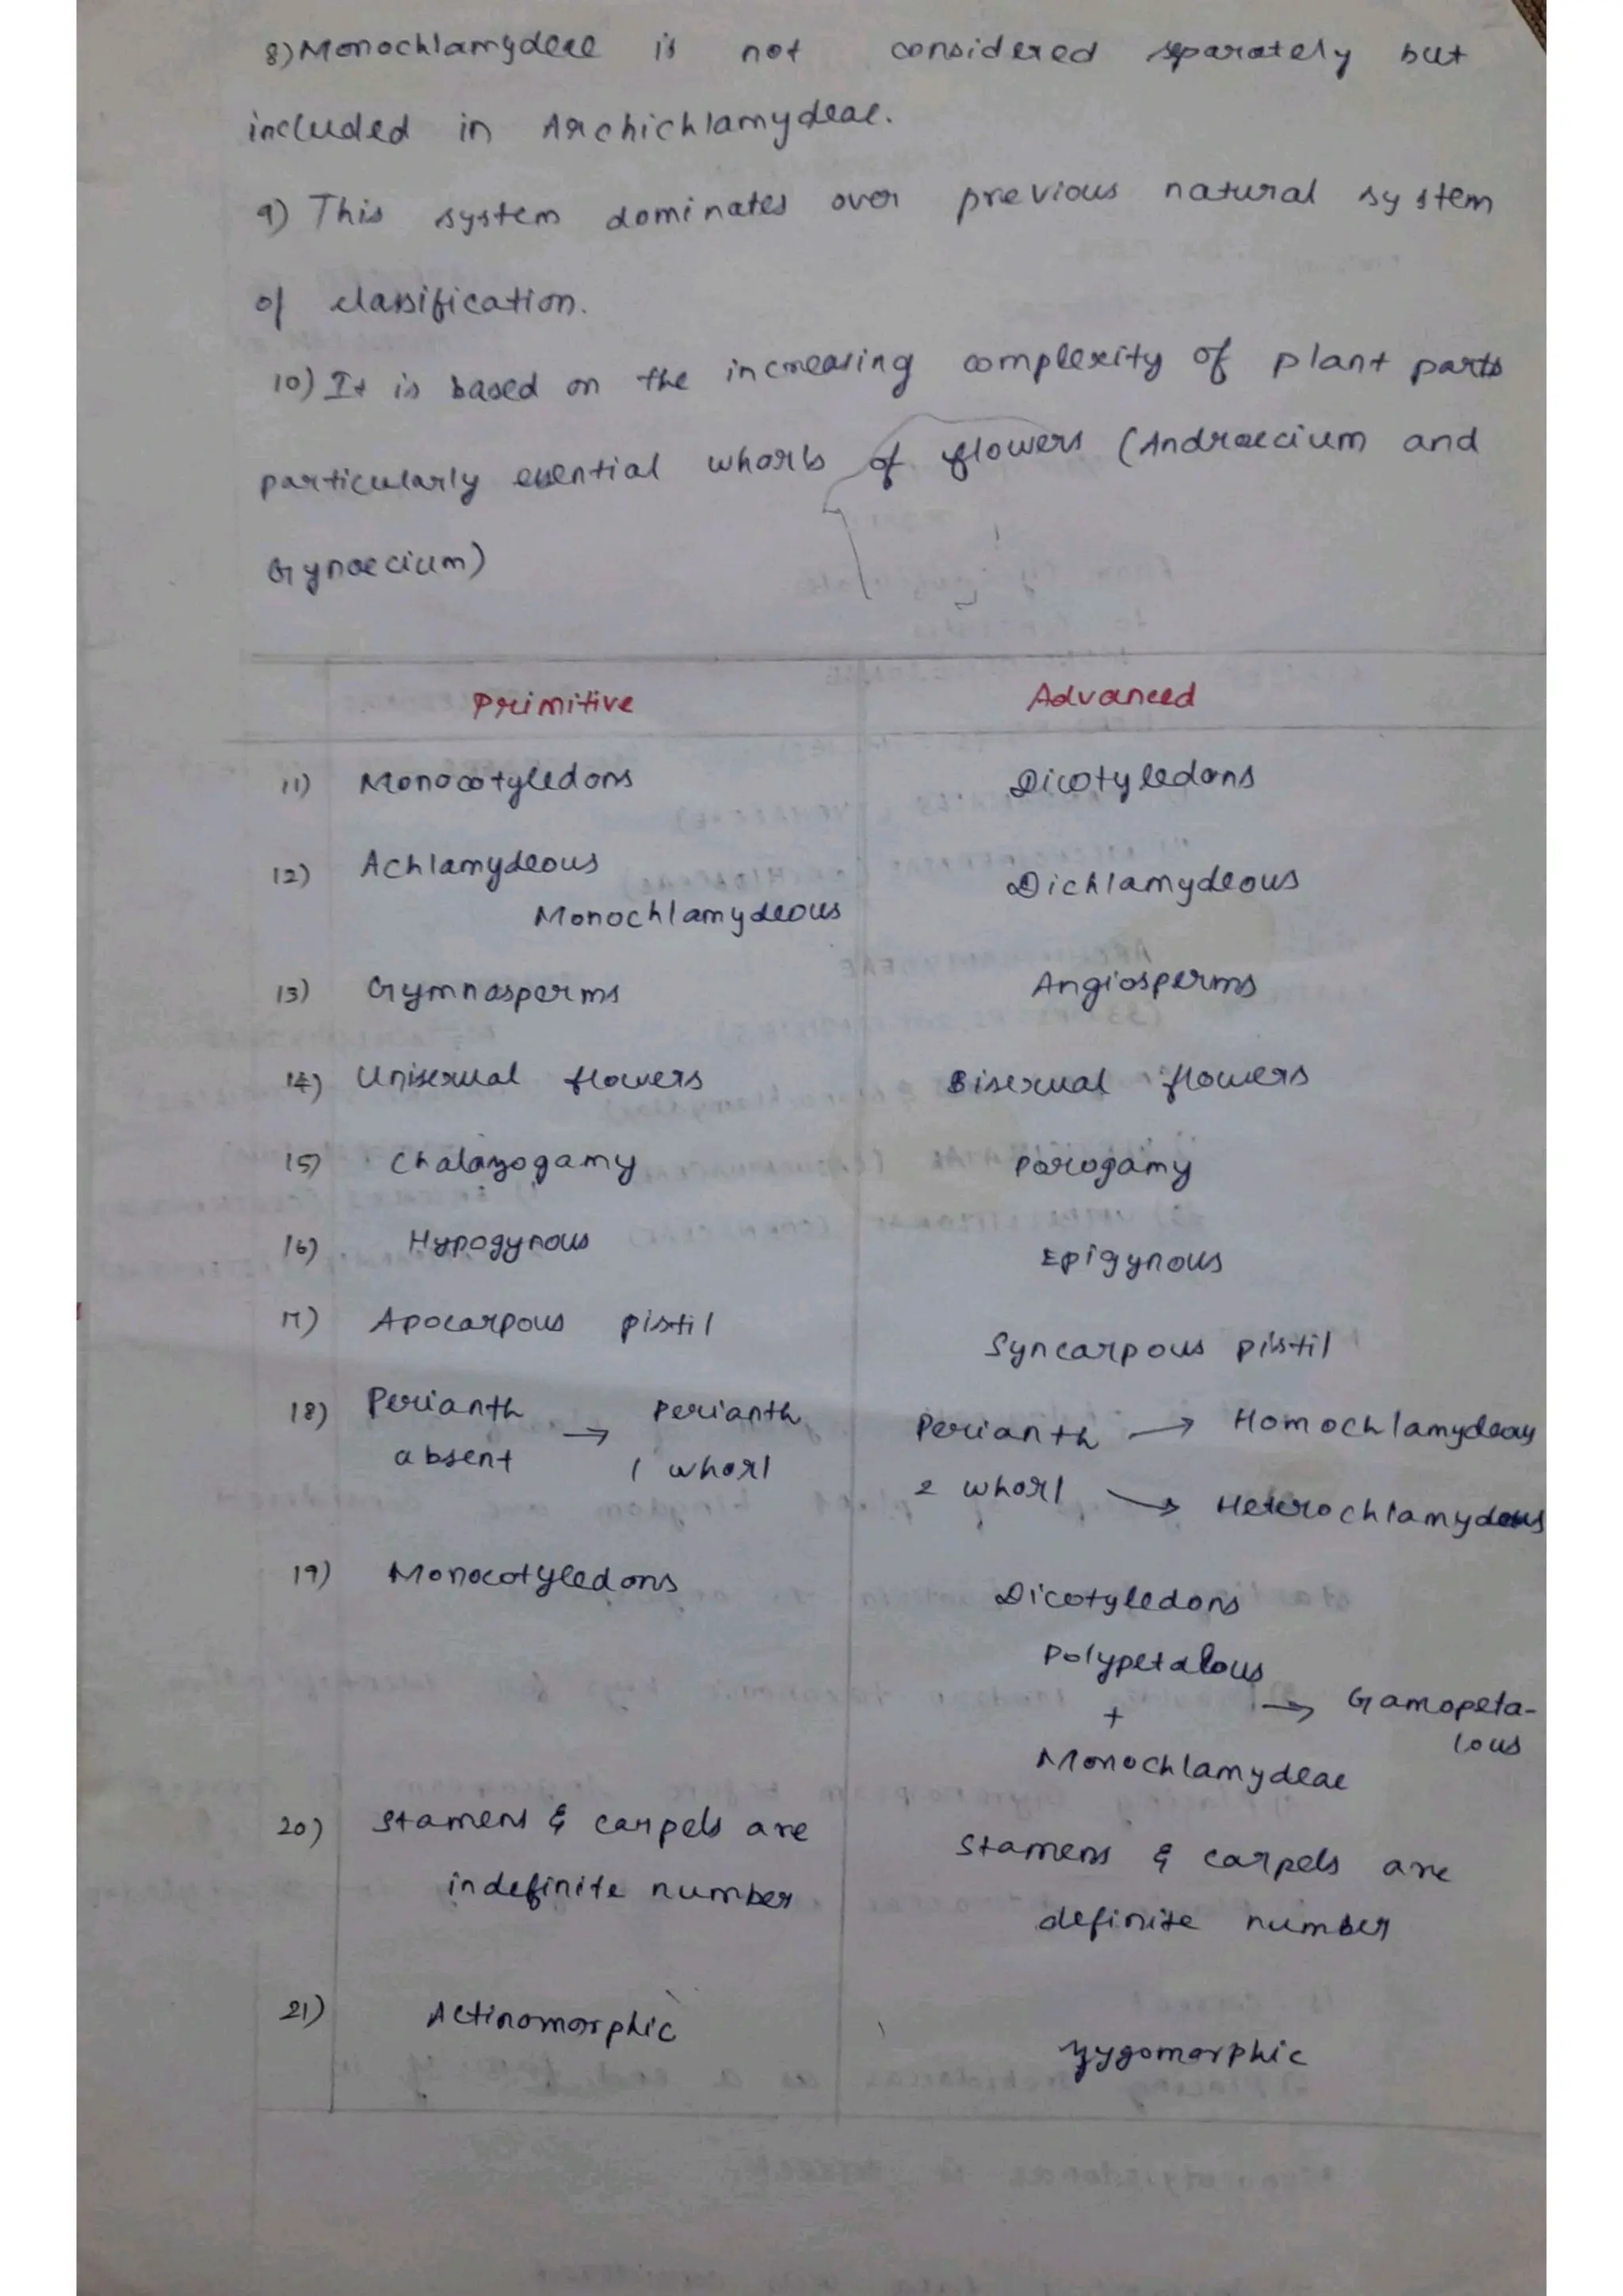 8) Monochlamydeae is not considered separately but
included in Archichlamydeae.
9) This system dominates over previous natural system
of classification.
10) It is based on the increasing complexity of plant parts
particularly essential whorls of flowers (Andraecium and
Gynoecium)
Primitive Advanced
11) Monocotyledons Dicotyledons
12) Achlamydeous Dichlamydeous
Monochlamydeous
13) Gymnosperms Angiosperms
14) Unisexual flowers Bisexual flowers
15) Chalazogamy Porogamy
16) Hypogynous Epigynous
17) Apocarpous pistil Syncarpous pistil
18) Perianth → Perianth Perianth → Homochlamydeous
absent 1 whorl 2 whorl → Heterochlamydeous
19) Monocotyledons Dicotyledons
Polypetalous
+ → Gamopeta-
lous
Monochlamydeae
20) Stamens & carpels are Stamens & carpels are
indefinite number definite number
21) Actinomorphic Zygomorphic